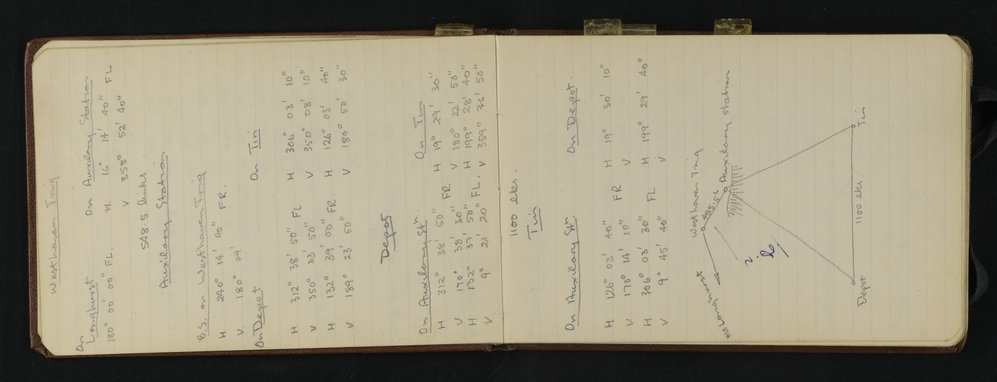 Westhaven Trig
On
Longhurst On Auxilary Station
180° 00' 00" FL H. 16° 14' 40" FL
V 358° 52' 40"
548.5 links.
Auxilary Station
B.S. on Westhaven Trig
H 240° 14' 00" FR.
V. 180° 09'
On Depot On Tin
H. 312° 38' 50" FL H 306° 03' 10"
V 350° 33' 50" V 350° 08' 10"
H 132° 39' 00" FR H 126° 03' 40"
V 189° 23' 50" V 189° 50' 30"
Depot
On Auxilary Stn. On Tin
H 312° 38' 50" FR H 19° 29' 30"
V 170° 38' 30" V 180° 22' 50"
H 132° 37' 50" FL. H 199° 28' 40"
V 9° 21' 20" V 359° 36' 50"
1100 lks.
Tin
On Auxilary Stn On Depot.
H 126° 03' 40" FR H 19° 30' 10"
V 170° 14' 10" V
H 306° 03' 30" FL H 199° 29' 40"
V 9° 45' 40" V
Mt Longhurst
Westhaven Trig
Auxilary Station
Depot
1100 lks
Tin